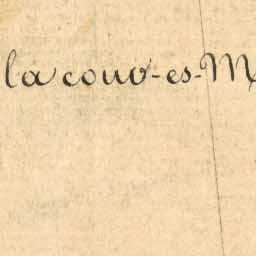 la couv-es-M